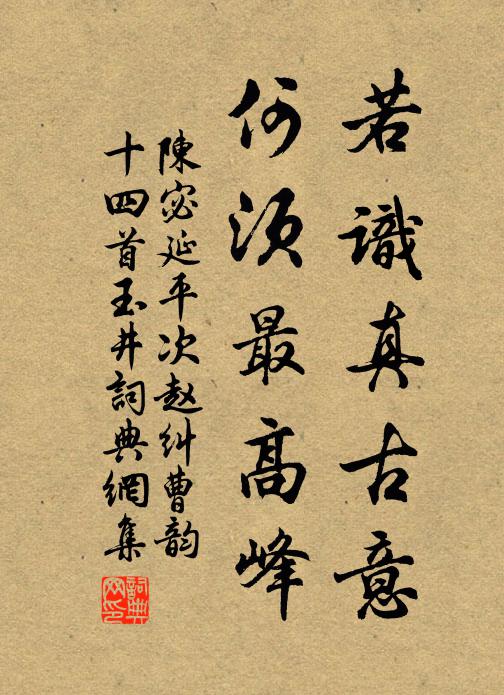 若識真古意
何須最高峰
陳宓延平次赵糾曹韵
十四首玉井詞典網集
詞典网印